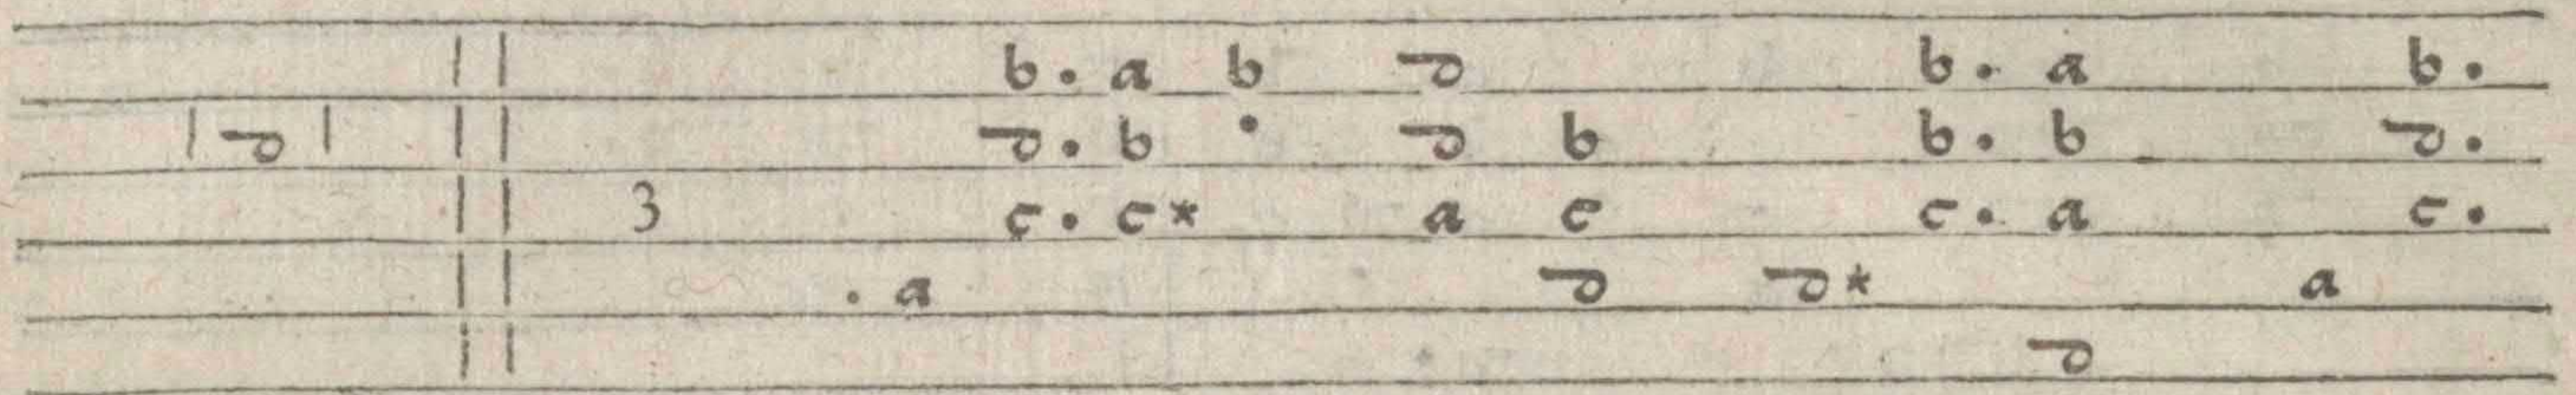 b. a b d b. a b.
d d. b . d b b. b d.
3 c. c* a c c. a c.
. a d d* a
d